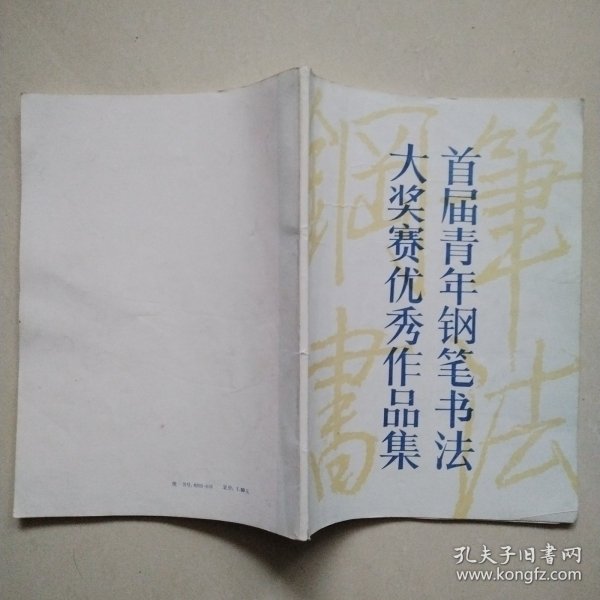 首届青年钢笔书法
大奖赛优秀作品集
鋼筆
書法
定价:1.80元
孔夫子旧书网
www.kongfz.com